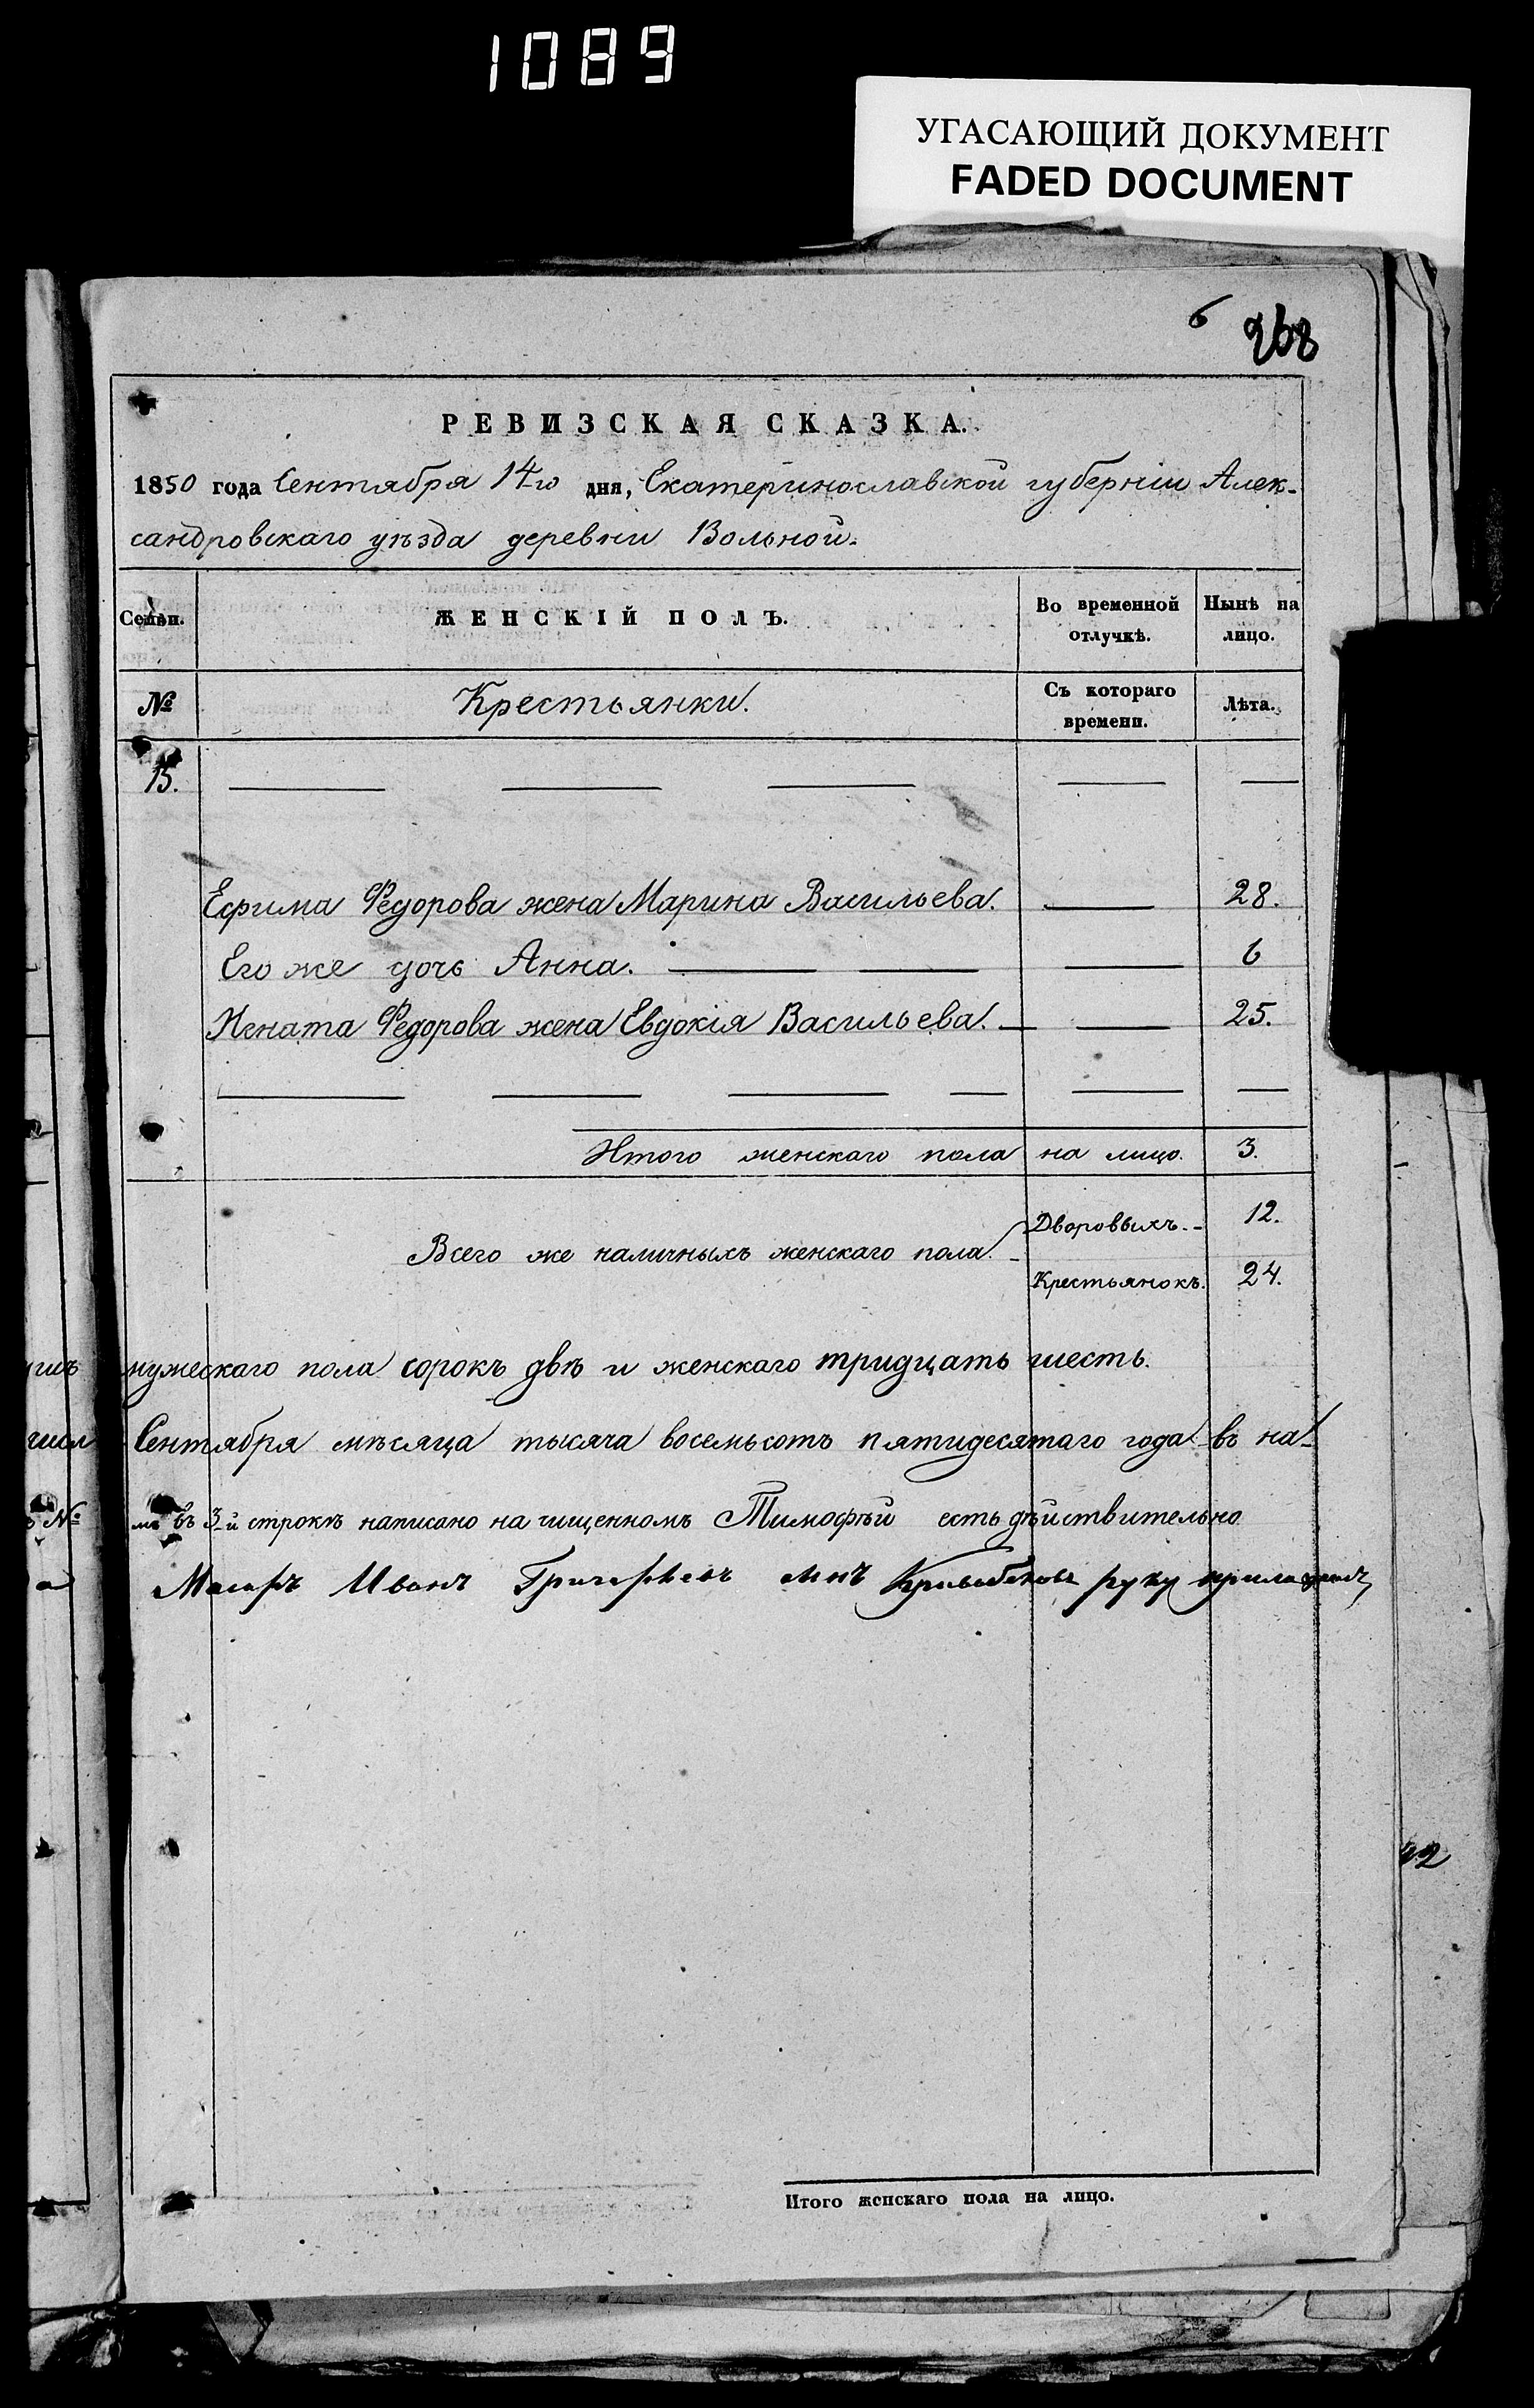 1089
УГАСАЮЩИЙ ДОКУМЕНТ
FADED DOCUMENT
6 268
РЕВИЗСКАЯ СКАЗКА.
1850 года Сентября 14-го дня, Екатеринославской губерніи Алек-
сандровскаго уѣзда деревни Вольной.
Семьи. ЖЕНСКІЙ ПОЛЪ. Во временной отлучкѣ. Нынѣ на лицо.
№ Крестьянки. Съ котораго времени. Лѣта.
15.
Ефима Федорова жена Марина Васильева. 28.
Его же дочь Анна. 6
Игната Федорова жена Евдокія Васильева. 25.
Итого женскаго пола на лицо. 3.
Всего же наличныхъ женскаго пола. Дворовыхъ. 12.
Крестьянокъ. 24.
мужескаго пола сорокъ двѣ и женскаго тридцать шесть.
Сентября мѣсяца тысяча восемьсотъ пятидесятаго года въ на-
мъ въ 3-й строкѣ написано на чищенномъ Тимофѣй есть дѣйствительно
№
Маіоръ Иванъ Григорьевъ сынъ руку приложилъ
42
Итого женскаго пола на лицо.